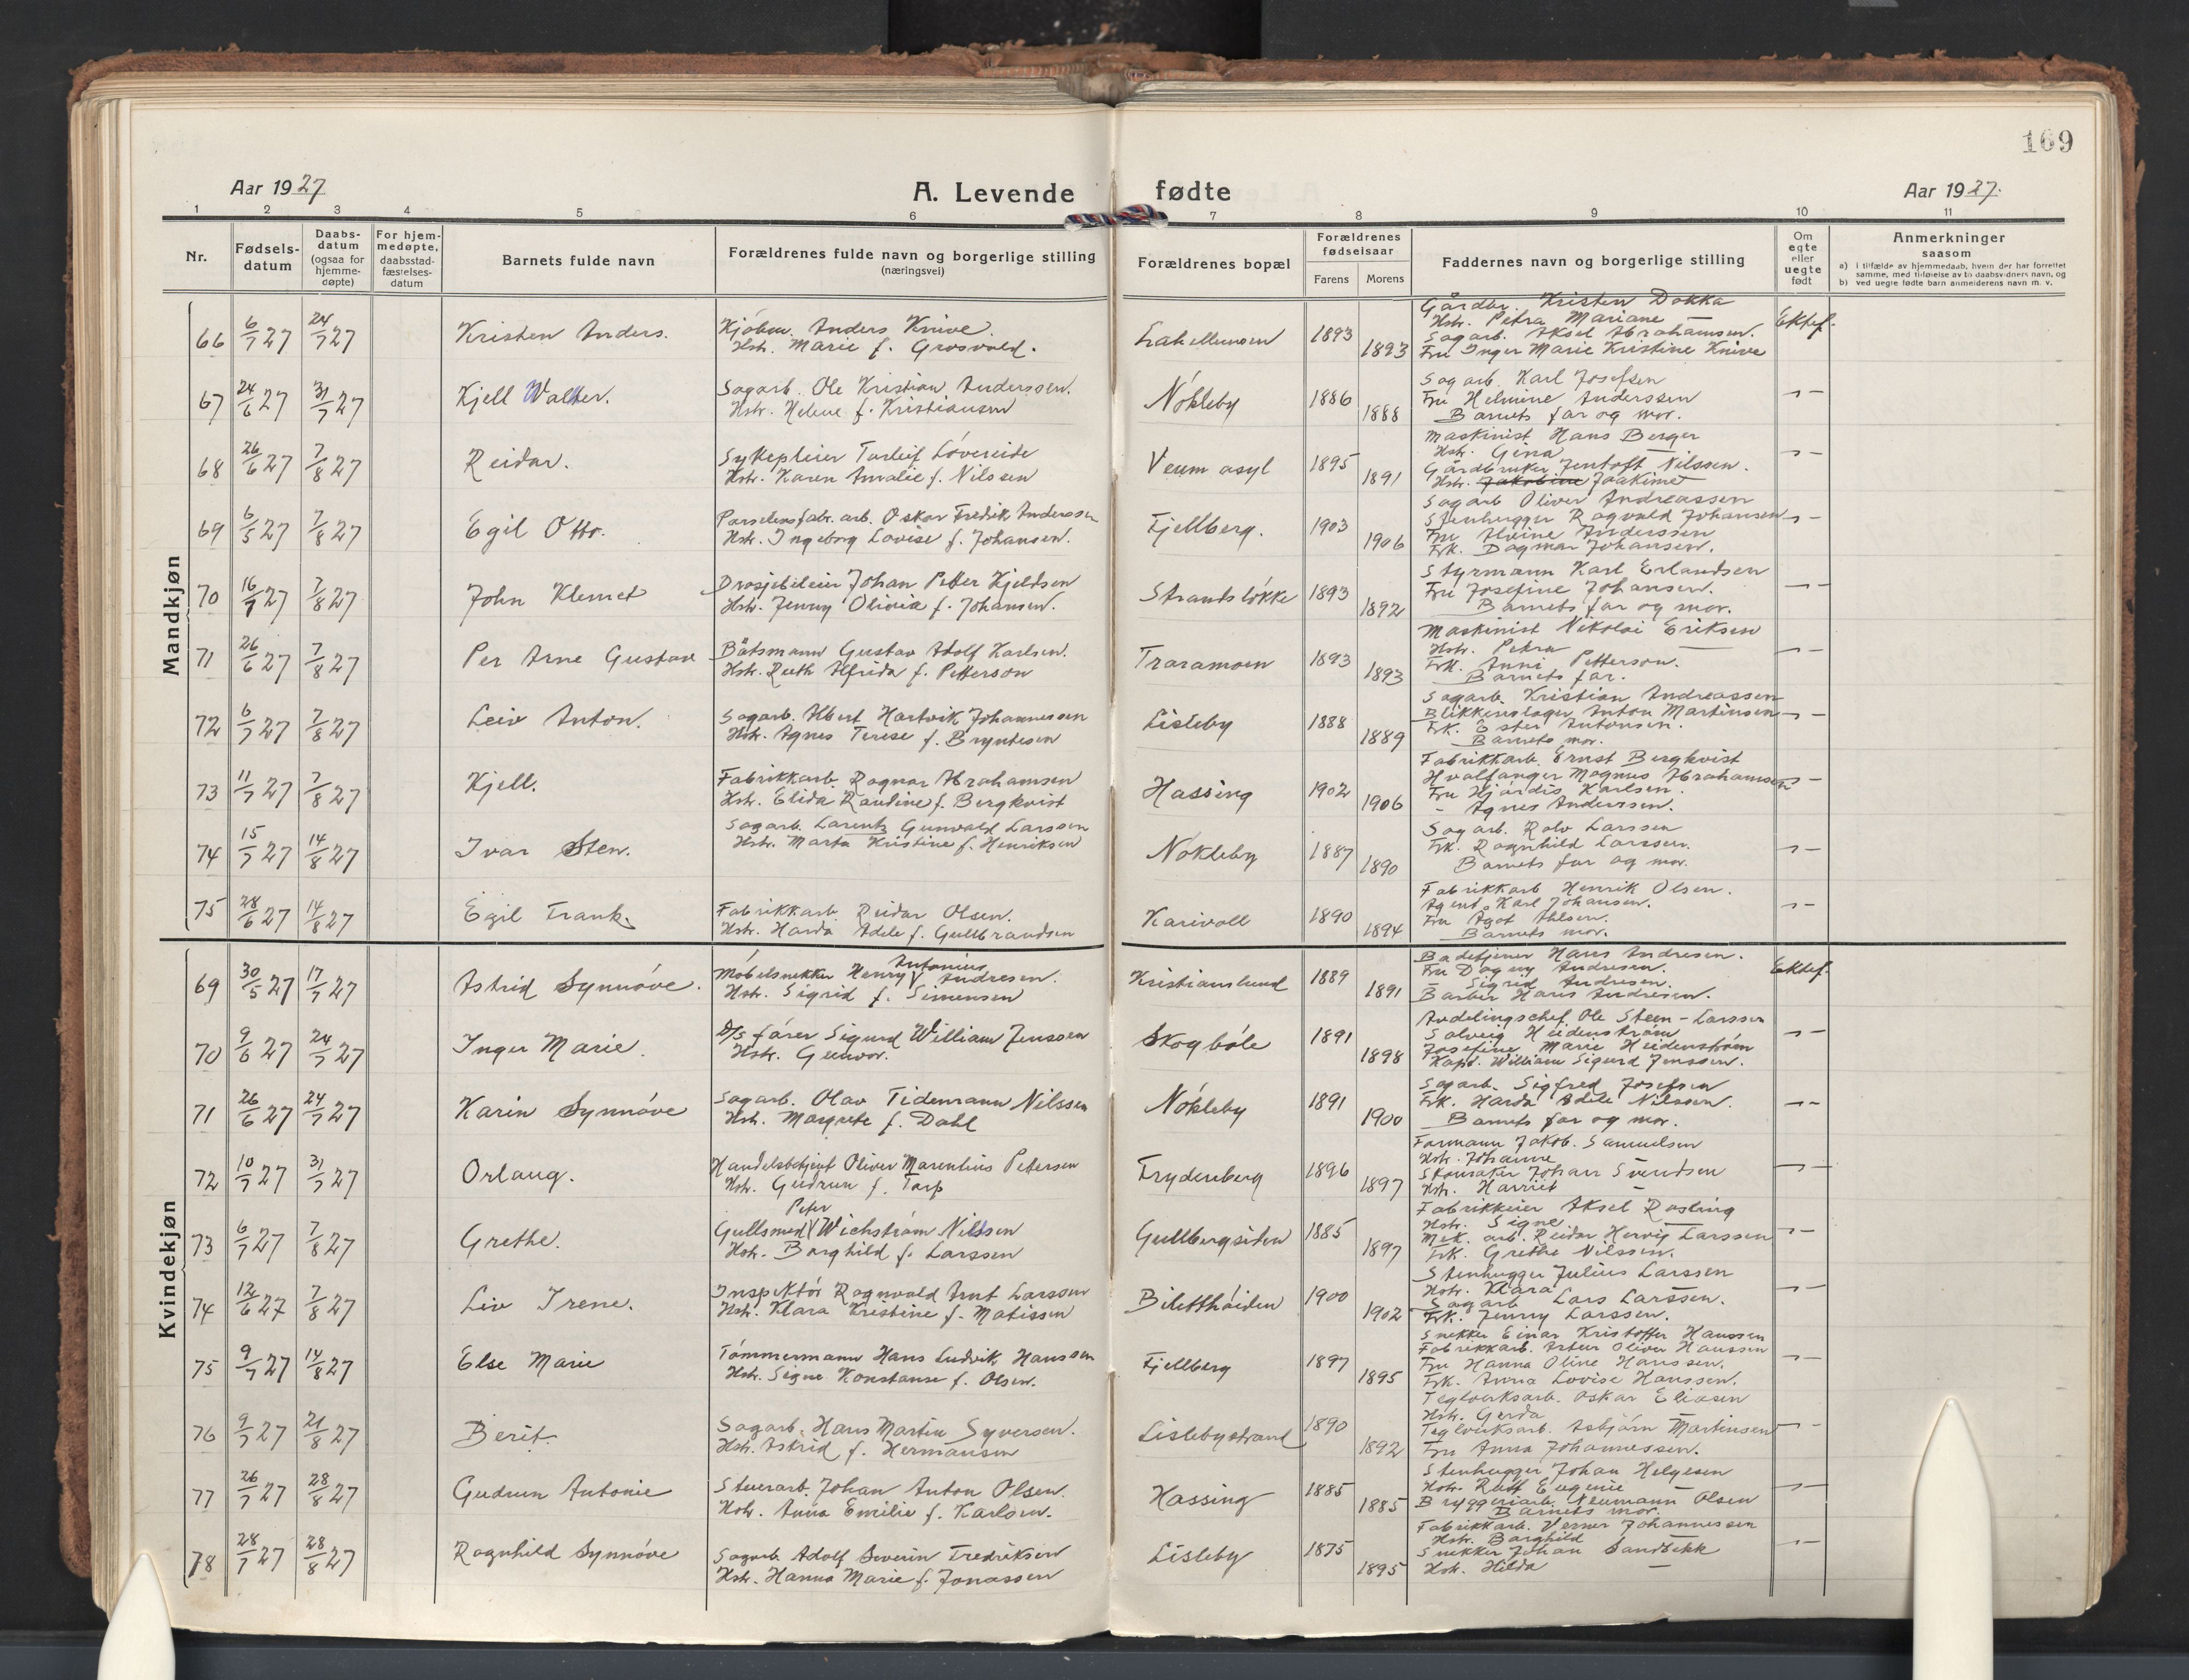 169
Aar 1927
A. Levende fødte
Aar 1927.
1 2 3 4 5 6 7 8 9 10 11
Nr.
Fødsels-
datum
Daabs-
datum
(ogsaa for
hjemme-
døpte)
For hjem-
medøpte,
daabsstad-
fæstelses-
datum
Barnets fulde navn
Forældrenes fulde navn og borgerlige stilling
(næringsvei)
Forældrenes bopæl
Forældrenes
fødselsaar
Farens Morens
Faddernes navn og borgerlige stilling
Om
egte
eller
uegte
født
Anmerkninger
saasom
a) i tilfælde av hjemmedaab, hvem der har forrettet
samme, med tilføielse av to daabsvidners navn, og
b) ved uegte fødte barn anmelderens navn m. v.
Mandkjøn
66 6/7 27 24/7 27 Kristen Anders.
Kjóbm. Anders Knive.
Hstr. Marie f. Grosvold.
1893 1893
Gårdbr. Kristen Dokka
Hstr. Petra Mariane —
Sagarb. Aksel Abrahamsen.
Fru Inger Marie Kristine Knive
Ektef.
67 24/6 27 31/7 27 Kjell Walter.
Sagarb. Ole Kristian Anderssen.
Hstr. Helene f. Kristiansen
Nókleby 1886 1888
Sagarb. Karl Josefsen
Fru Helmine Anderssen
Barnets far og mor.
-"-
68 26/6 27 7/8 27 Reidar.
Sykepleier Torleif Lóvereide
Hstr. Karen Amalie f. Nilssen
Veum asyl 1895 1891
Maskinist Hans Berger
Hstr. Gina —
Gårdbruker Jentoft Nilssen.
Hstr. Jakobine Joakime —
-"-
69 6/5 27 7/8 27 Egil Otto.
Porselensfabr. arb. Oskar Fredrik Anderssen
Hstr. Ingeborg Lovise f. Johansen.
Fjellberg. 1903 1906
Sagarb Oliver Andreassen
Stenhugger Ragvald Johansen
Fru Alvine Anderssen
Frk. Dagmar Johansen.
-"-
70 16/7 27 7/8 27 John Klemet
Drosjebileier Johan Petter Kjeldsen
Hstr. Jenny Olivia f. Johansen.
Strandsløkke 1893 1892
Styrmann Karl Erlandsen
Fru Josefine Johansen.
Barnets far og mor.
-"-
71 26/6 27 7/8 27 Per Arne Gustav
Båtsmann Gustav Adolf Karlsen.
Hstr. Ruth Alfrida f. Petterson
Traramoen 1893 1893
Maskinist Nikolai Eriksen
Hstr. Petra —
Frk. Anni Petterson.
Barnets far.
-"-
72 6/7 27 7/8 27 Leiv Anton.
Sagarb. Albert Hartvik Johannessen
Hstr. Agnes Terese f. Bryntesen
Lisleby 1888 1889
Sagarb. Kristian Andreassen
Blikkenslager Anton Martinsen
Frk. Ester Antonsen.
Barnets mor.
-"-
73 11/7 27 7/8 27 Kjell.
Fabrikkarb. Ragnar Abrahamsen
Hstr. Elida Raudine f. Bergkvist
Hassing 1902 1906
Fabrikkarb. Ernst Bergkvist
Hvalfanger Magnus Abrahamsen
Fru Hjórdis Karlsen.
- Agnes Anderssen.
-"-
74 15/7 27 14/8 27 Ivar Sten.
Sagarb. Larentz Gunvald Larssen
Hstr. Marta Kristine f. Henriksen
Nókleby 1887 1890
Sagarb. Rolv Larssen
Frk. Ragnhild Larssen.
Barnets far og mor.
-"-
75 28/6 27 14/8 27 Egil Frank.
Fabrikkarb. Reidar Olsen.
Hstr. Harda Adele f. Gulbrandsen
Karivoll 1890 1894
Fabrikkarb Henrik Olsen.
Agent Karl Johansen.
Fru Agot Ahlsen.
Barnets mor.
-"-
Kvindekjøn
69 30/5 27 17/7 27 Astrid Synnóve.
Antonius
Móbelsnekker Henry Andresen.
Hstr. Sigrid f. Simensen
Kristianslund 1889 1891
Badetjener Hans Andresen.
Fru Dagny Andresen.
— Sigrid Andresen.
Barber Hans Andresen.
Ektef.
70 9/6 27 24/7 27 Inger Marie.
D/S fórer Sigurd William Jenssen
Hstr. Gunvor.
Skogbóle 1891 1898
Avdelingschef Ole Steen-Larssen
Solveig Heidenstróm
Josefine Marie Heidenstróm
Kapt. William Sigurd Jenssen.
-"-
71 26/6 27 24/7 27 Karin Synnóve
Sagarb. Olav Tidemann Nilssen
Hstr. Margrete f. Dahl
Nókleby 1891 1900
Sagarb. Sigfred Josefsen
Frk. Harda Adele Nilssen.
Barnets far og mor.
-"-
72 10/7 27 31/7 27 Orlaug.
Handelsbetjent Oliver Marentius Petersen
Hstr. Gudrun f. Torp
Frydenberg 1896 1897
Formann Jakob Samuelsen
Hstr. Johanne
Skomaker Johan Svendsen
Hstr. Harriet —
-"-
73 6/7 27 7/8 27 Grethe.
Peter
Gullsmed Wichstróm Nilssen
Hstr. Borghild f. Larssen
Gullbergsiden 1885 1897
Fabrikkeier Aksel Rosling
Hstr. Signe —
Mek. arb. Reidar Hervig Larssen
Frk. Grethe Nilssen.
-"-
74 12/6 27 7/8 27 Liv Irene.
Inspektór Ragnvald Arnt Larssen
Hstr. Klara Kristine f. Matissen
Biletthóiden 1900 1902
Stenhugger Julius Larssen
Hstr. Klara —
Sagarb Lars Larssen.
Frk. Jenny Larssen.
-"-
75 9/7 27 14/8 27 Else Marie
Tómmermann Hans Ludvik Hanssen
Hstr. Signe Konstanse f. Olsen.
Fjellberg 1897 1895
Snekker Einar Kristoffer Hanssen
Fabrikkarb. Artur Oliver Hanssen
Fru Hanna Oline Hanssen.
Frk. Anna Lovise Hanssen.
-"-
76 9/7 27 21/8 27 Berit.
Sagarb. Hans Martin Syversen.
Hstr. Astrid f. Hermansen
Lislebystrand 1890 1892
Teglverksarb. Oskar Eliasen
Hstr. Gerda —
Teglverksarb. Asbjórn Martinsen
Fru Anna Johannessen.
-"-
77 26/7 27 28/8 27 Gudrun Antonie
Stuerarb. Johan Anton Olsen.
Hstr. Anna Emilie f. Karlsen.
Hassing 1885 1885
Stenhugger Johan Helgesen
Hstr. Ruth Eugenie —
Bryggeriarb. Neumann Olsen
Barnets mor.
-"-
78 28/7 27 28/8 27 Ragnhild Synnóve
Sagarb. Adolf Severin Fredriksen
Hstr. Hanna Marie f. Jonassen
Lisleby 1875 1895
Fabrikkarb. Verner Johannessen
Hstr. Borghild —
Snekker Johan Sandbekk
Hstr. Hilda —
-"-